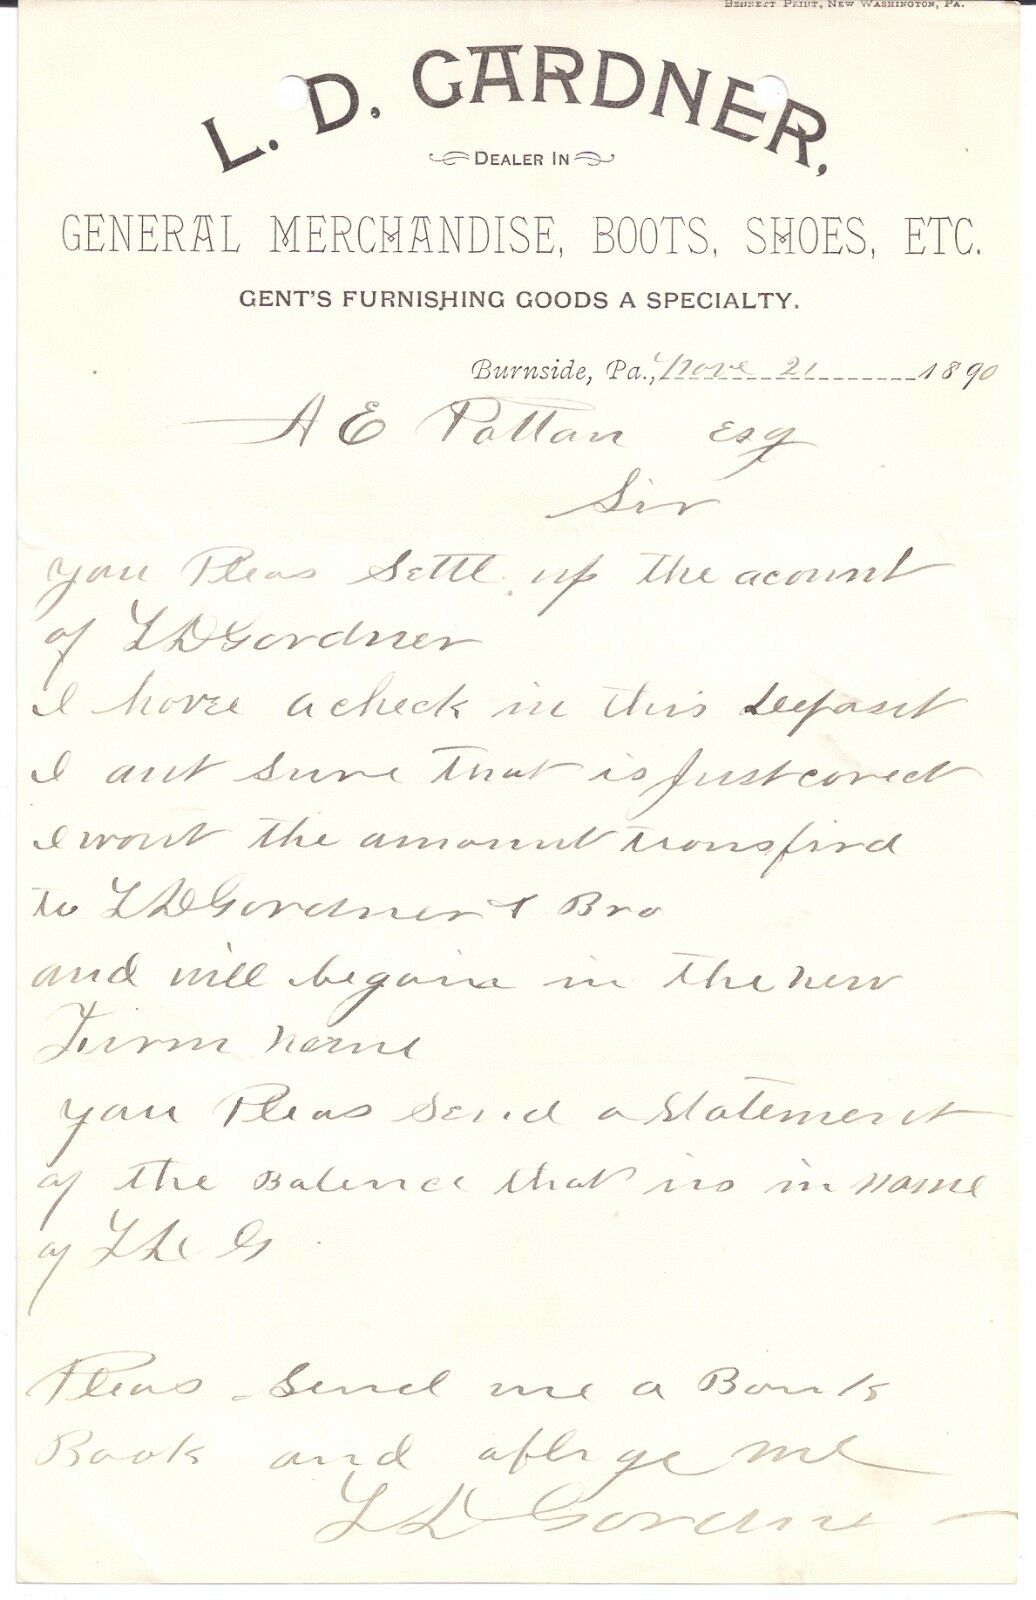 BENNETT PRINT, NEW WASHINGTON, PA.
L. D. GARDNER,
DEALER IN
GENERAL MERCHANDISE, BOOTS, SHOES, ETC.
GENT'S FURNISHING GOODS A SPECIALTY.
Burnside, Pa., Nove 21 1890
A E Patton Esq
Sir
you Pleas Settl up the acount
of L D Gardner
I have a check in this Deposit
I ant sure that is Just corect
I want the amount transfird
to L D Gardner & Bro
and will begain in the new
Firm name
you Pleas send a statement
of the Balence that is in name
of L D G
Pleas send me a Bank
Book and oblige me
L D Gardner